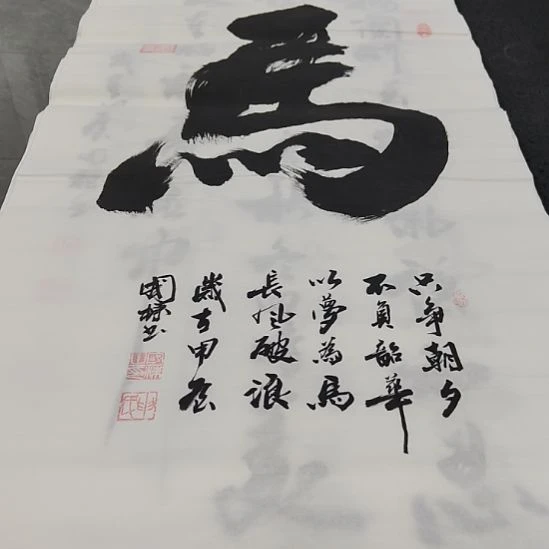 馬
只争朝夕
不負韶華
以夢為馬
長风破浪
歲在甲辰
國標书